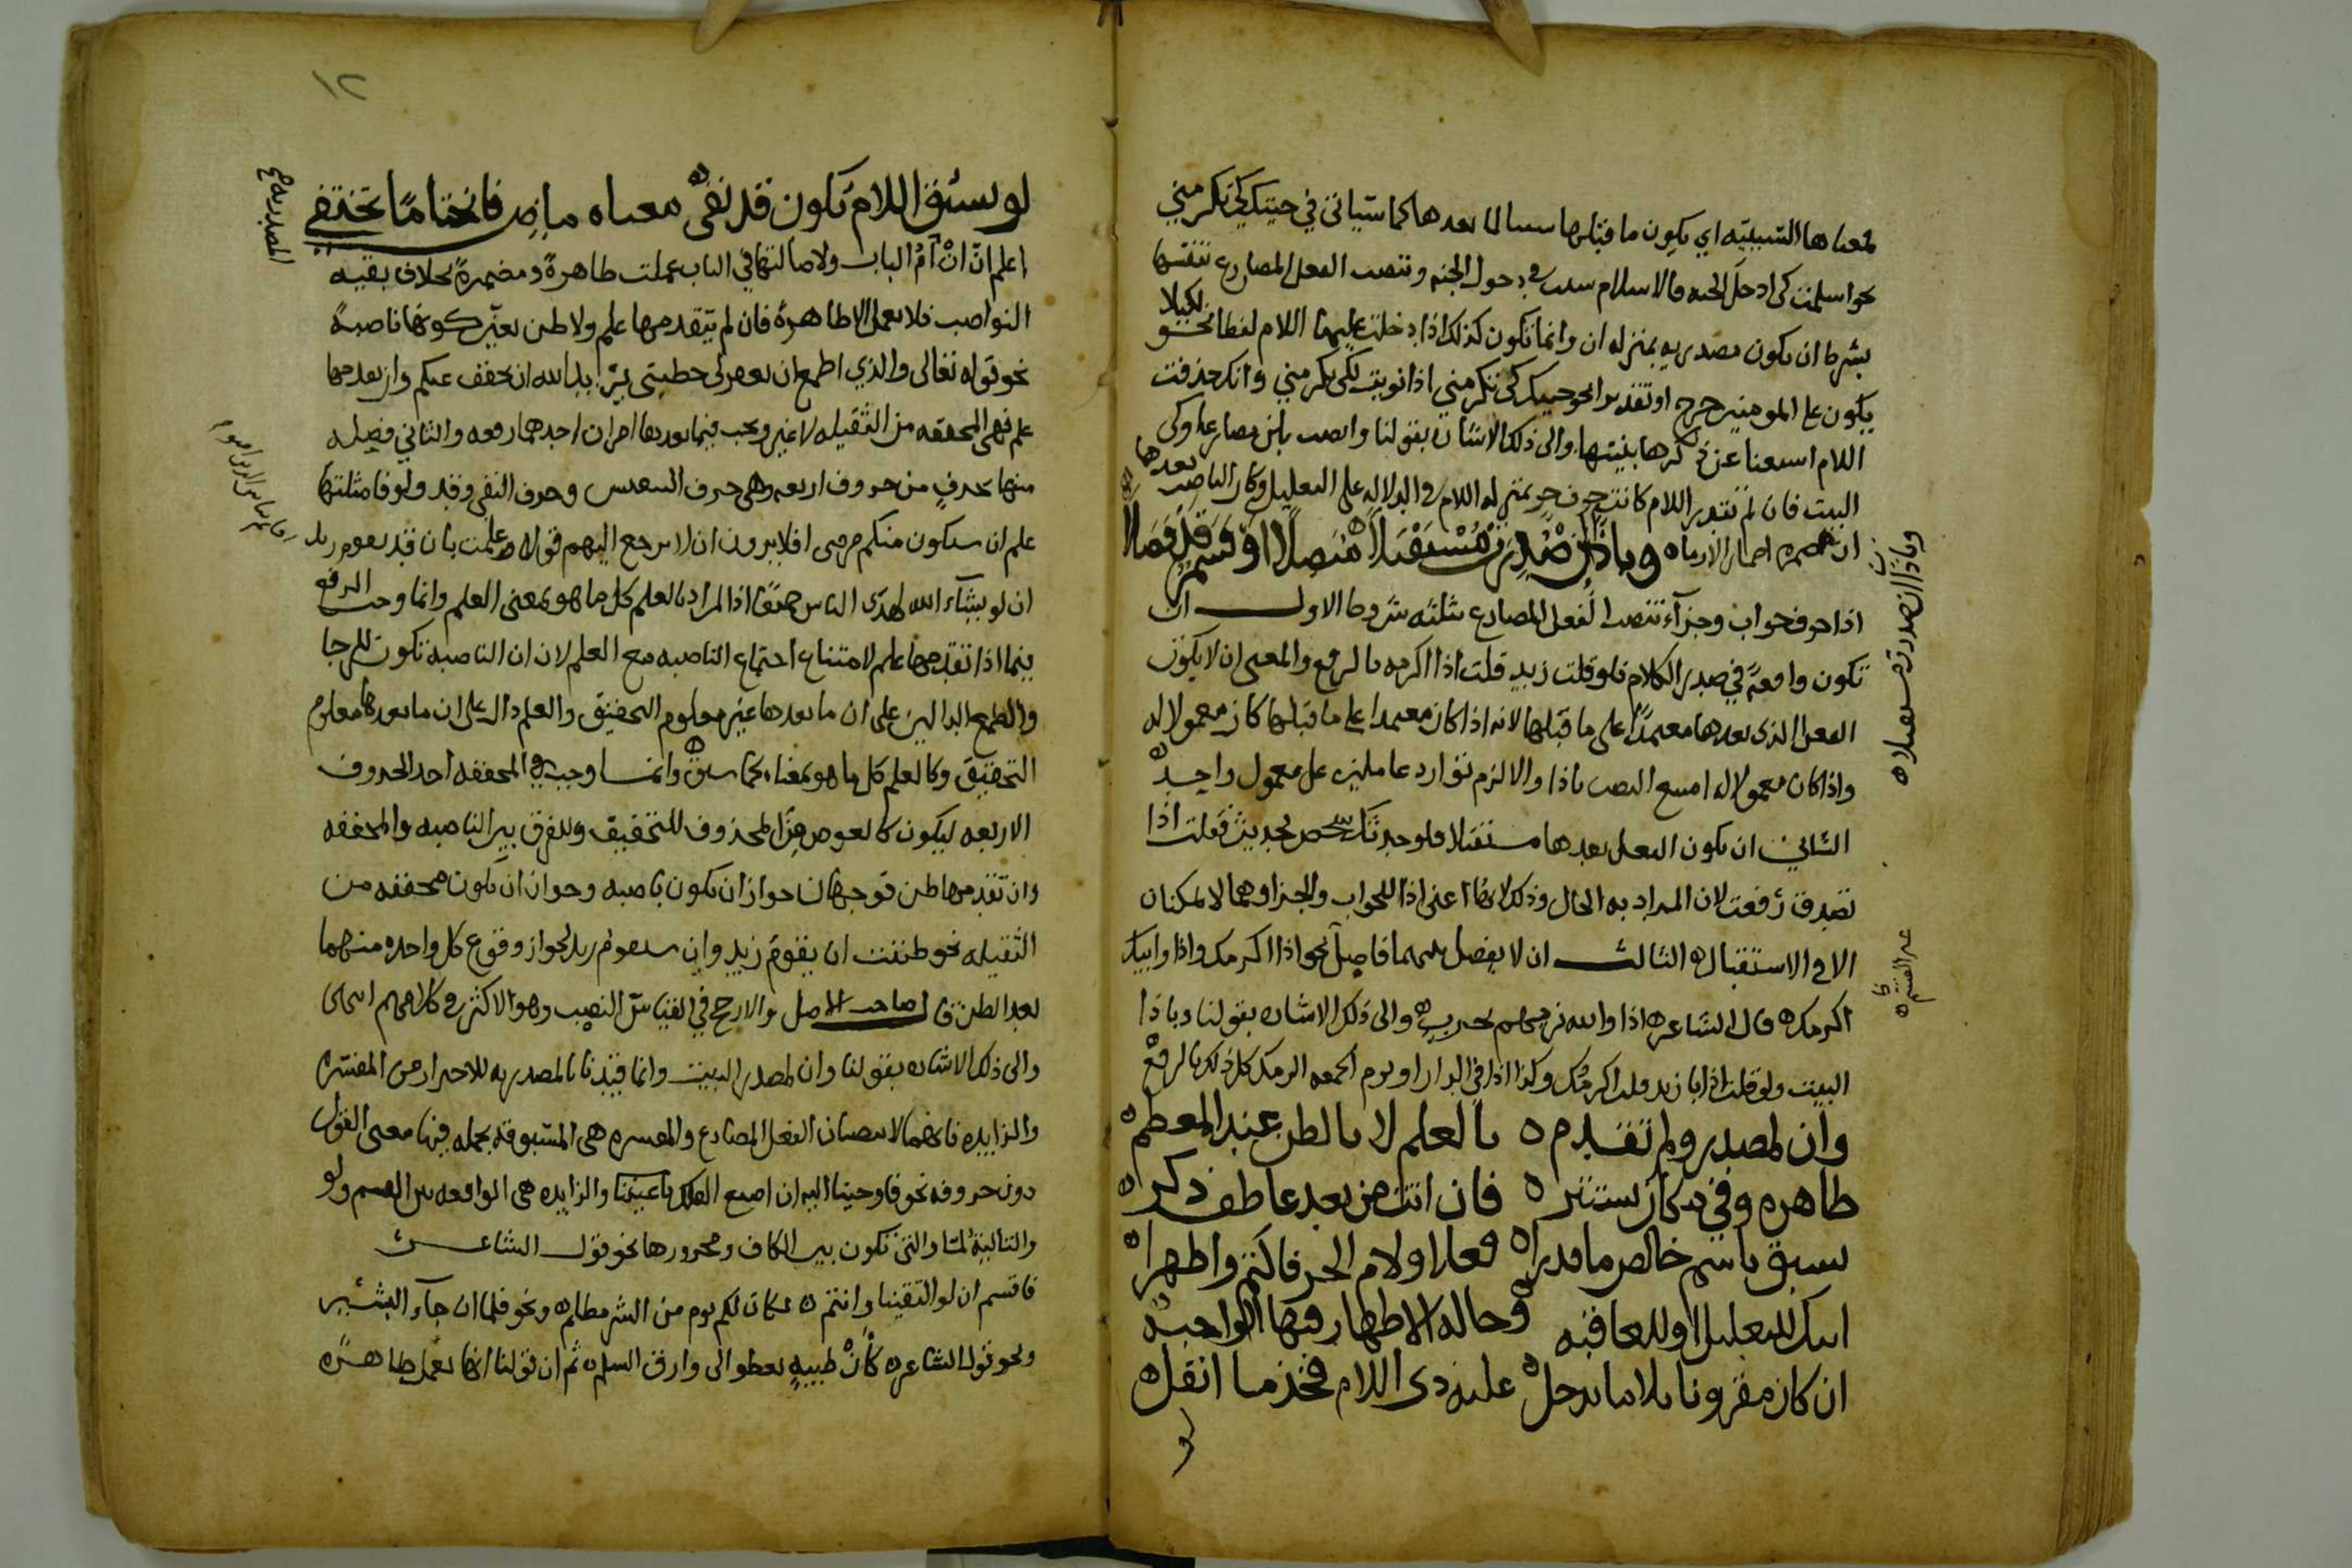 لمعناها السببيه اي يكون ما قبلها سببا لما بعدها كما سياتي في جيتك كي تكرمني
نحو اسلمت كي ادخل الجنه فالاسلام سبب في دخول الجنه وتنصب الفعل المضارع بنفسها
بشرط ان يكون مصدريه بمنزله ان وانما تكون كذلك اذا دخلت عليها اللام لفظا نحو لكيلا
يكون على المومنين حرج او تقديرا نحو جيتك كي تكرمني اذا نويت لكي تكرمني وانك حذفت
اللام استغنا عن ذكرها بنيتها والى ذلك الاشاره بقولنا وانصب بلن مضارعا وكي
البيت فان لم تقدر اللام كانت حرف جر بمنزله اللام في الدلاله على التعليل وكان الناصب بعدها
ان مضمره اضمارا لازما ه وباذا ان صدرت مستقبلا متصلا او قسم قد فصلا
اذا حرف جواب وجزآء تنصب الفعل المضارع بثلثه شروط الاول ان
تكون واقعة في صدر الكلام فلو قلت زيد قلت اذا اكرمه بالرفع والمعنى ان لا يكون
الفعل الذي بعدها معتمدًا على ما قبلها لانه اذا كان معتمدا على ما قبلها كان معمولا له
واذا كان معمولا له امتنع النصب باذا والا لزم توارد عاملين على معمول واحد ه
الثاني ان يكون الفعل بعدها مستقبلا فلو حدثك شخص بحديث فقلت اذا
تصدق رفعت لان المراد به الحال وذلك لانها اعني اذا للجواب والجزا وهما لا يمكنان
الا في الاستقبال ه الثالث ان لا يفصل بينهما فاصل نحو اذا اكرمك واذا واييك
اكرمك ه قال الشاعر ه اذا والله نرميهم بحرب ه والى ذلك الاشاره بقولنا وباذا
البيت ولو قلت اذا يا زيد قلت اكرمك وكذا اذا في الدار او يوم الجمعه اكرمك كل ذلك بالرفع
وان لمصدر ولم تقدم ه بالعلم لا بالظن عند المعظم ه
ظاهره وفي مكان يستتر ه فان اتت من بعد عاطف ذكرا ه
سبق باسم خالص ما قدرا ه فعلا او لام الجر فاكتم واظهرا ه
اتتك للتعليل او للعاقبه وحاله الاظهار فيها الواجبه
ان كان مقرونا بلا ما يدخل عليه ذي اللام فخذ ما انقل ه
لو
وباذا ان صدرت مستقبلا ه
غير القسم ه
١٢
لو يسبق اللام تكون قد نفى ه معناه ماض فانختاما تختفي
اعلم انّ انْ امّ الباب ولاصالتها في الباب عملت ظاهرةً ومضمرةً بخلاف بقيه
النواصب فلا يعمل الا ظاهرةً فان لم يتقدمها علم ولا ظن تعيّن كونها ناصبهً
نحو قوله تعالى والذي اطمع ان يغفر لي خطيتي يريد الله ان يخفف عنكم وان تقدمها
علم فهي المخففه من الثقيله لا غير ويجب فيما بعدها امران احدهما رفعه والثاني فصله
منها بحرف من حروف اربعه وهي حرف التنفيس وحرف النفي وقد ولو فامثلتها
علم ان سيكون منكم مرضى افلا يرون ان لا يرجع اليهم قولا وعلمت بان قد يقوم زيد
ان لو يشآء الله لهدى الناس جميعًا اذا المراد بالعلم كل ما هو بمعنى العلم وانما وجب الرفع
فيما اذا تقدمها علم لامتناع اجتماع الناصبه مع العلم لان ان الناصبه تكون للرجا
والطمع الدالين على ان ما بعدها غير معلوم التحقيق والعلم دال على ان ما بعدها معلوم
التحقيق وكالعلم كل ما هو بمعناه كما سبق ه وانما وجب في المخففه احد الحروف
الاربعه ليكون كالعوض من المحذوف للتخفيف وللفرق بين الناصبه والمخففه
وان تقدمها ظن فوجهان جواز ان تكون ناصبه وجواز ان تكون مخففه من
الثقيله نحو ظننت ان يقوم زيد وان سيقوم زيد لجواز وقوع كل واحده منهما
بعد الظن قال صاحب الاصل والارجح في القياس النصب وهو الاكثر في كلامهم
والى ذلك الاشاره بقولنا وان لمصدر البيت وانما قيدنا بالمصدريه للاحتراز من المفسره
والزايده فانهما لا ينصبان الفعل المضارع والمفسره هي المسبوقه بجمله فيها معنى القول
دون حروفه نحو فاوحينا اليه ان اصنع الفلك باعيننا والزايده هي الواقعه بين القسم ولو
والتاليه لمّا والتي تكون بين الكاف ومجرورها نحو قول الشاعر
فاقسم ان لو التقينا وانتم ه لكان لكم يوم من الشر مظلم ه ونحو فلما ان جآء البشير
ونحو قول الشاعر ه كأن ظبيةٍ تعطو الى وارق السلم ه ثم ان قولنا انها تعمل ظاهره
المصدريه